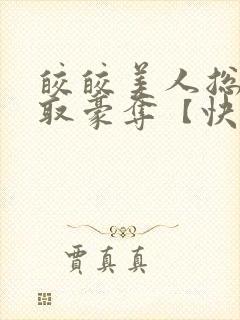 皎皎美人惨
取豪夺【快
贾真真